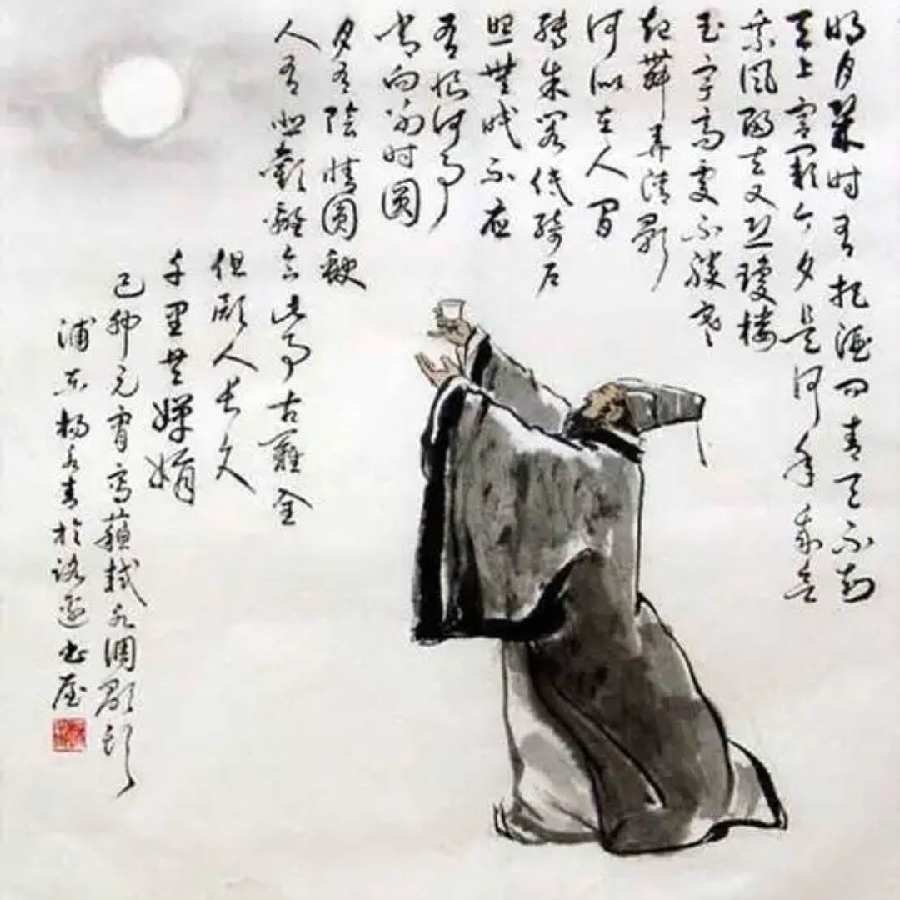 明月幾时有把酒问青天不知
天上宫闕今夕是何年我欲
乘風歸去又恐瓊楼
玉宇高處不勝寒
起舞弄清影
何似在人間
轉朱阁低綺户
照無眠不應
有恨何事
長向别时圆
月有陰晴圓缺
人有悲歡離合此事古難全
但願人長久
千里共嬋娟
己卯元宵寫蘇軾水調歌頭
浦東楊春於書屋